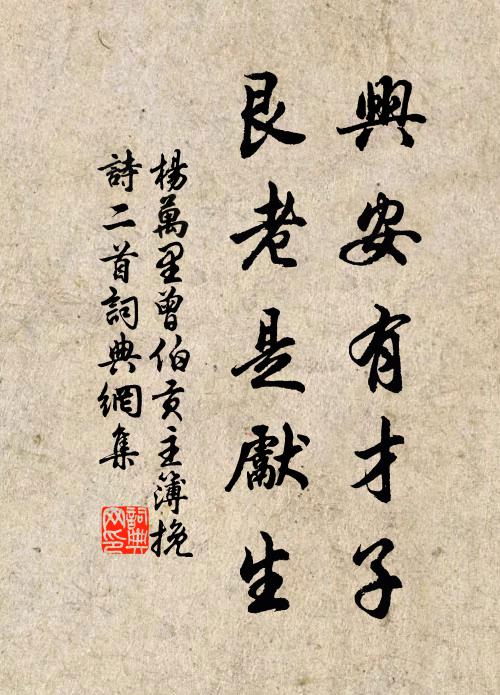 興安有才子
艮老是獻生
楊萬里曾伯貢主簿挽
詩二首詞典網集
詞典
网印